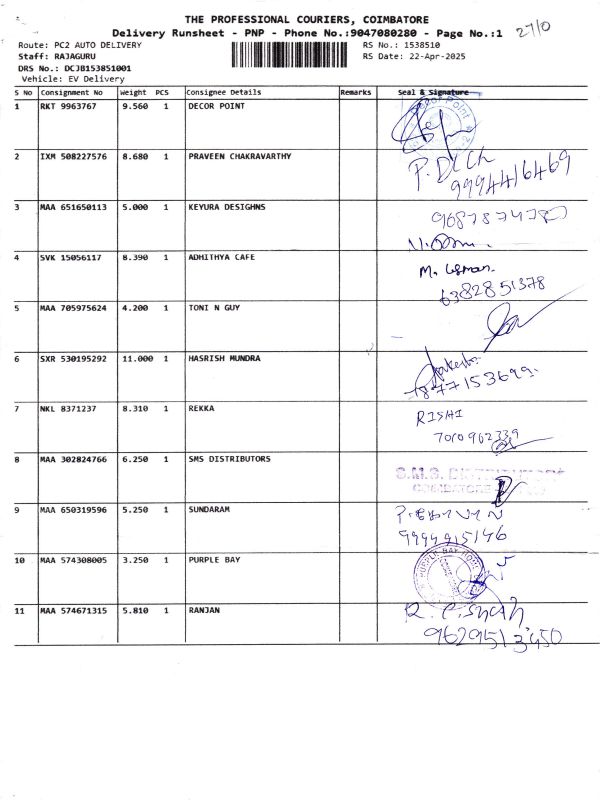 THE PROFESSIONAL COURIERS, COIMBATORE
Delivery Runsheet - PNP - Phone No.:9047080280 - Page No.:1
Route: PC2 AUTO DELIVERY RS No.: 1538510
Staff: RAJAGURU RS Date: 22-Apr-2025
DRS No.: DCJB153851001
Vehicle: EV Delivery
S No Consignment No Weight PCS Consignee Details Remarks Seal & Signature
1 RKT 9963767 9.560 1 DECOR POINT
2 IXM 508227576 8.680 1 PRAVEEN CHAKRAVARTHY
9994416469
3 MAA 651650113 5.000 1 KEYURA DESIGHNS
4 SVK 15056117 8.390 1 ADHITHYA CAFE
6382851378
5 MAA 705975624 4.200 1 TONI N GUY
6 SXR 530195292 11.000 1 HASRISH MUNDRA
7 NKL 8371237 8.310 1 REKKA
RISHI
7010962339
8 MAA 302824766 6.250 1 SMS DISTRIBUTORS
S.M.S. DISTRIBUTORS
COIMBATORE
9 MAA 650319596 5.250 1 SUNDARAM
9994915146
10 MAA 574308005 3.250 1 PURPLE BAY
PURPLE BAY
11 MAA 574671315 5.810 1 RANJAN
9629513450